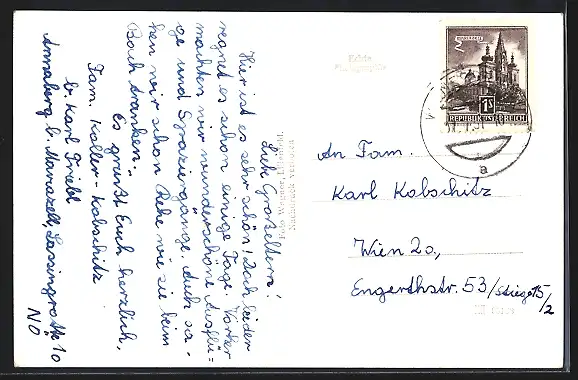 Liebe Großeltern!
Hier ist es sehr schön! Doch leider
regnet es schon einige Tage. Vorher
machten wir wunderschöne Ausflü-
ge und Spaziergänge. Auch sa-
hen wir schon Rehe wie sie beim
Bach tranken.
Es grüßt Euch herzlich,
Fam. Koller-Kobschitz
b. Karl Friebl
Annaberg b. Mariazell, Lassingrotte 10
NÖ
Echte
Nachdruck verboten
REPUBLIK ÖSTERREICH
1 S
a
An Fam.
Karl Kobschitz
Wien 20,
Engerthstr. 53/Stiege 5/2